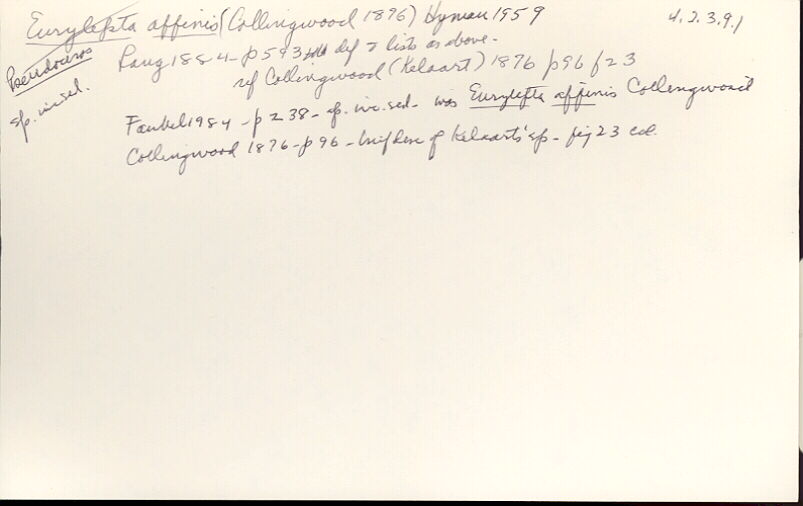 Eurylepta affinis (Collingwood 1876) Hyman 1959 4.2.3.9.1
Pseudoceros
sp. inc. sed.
Lang 1884 - p 593 def & lists as above.
ref Collingwood (Kelaart) 1876 p96 f23
Faubel 1984 - p 238 - sp. inc. sed. - was Eurylepta affinis Collingwood
Collingwood 1876 - p 96 - brief desc of Kelaart's sp - fig 23 col.